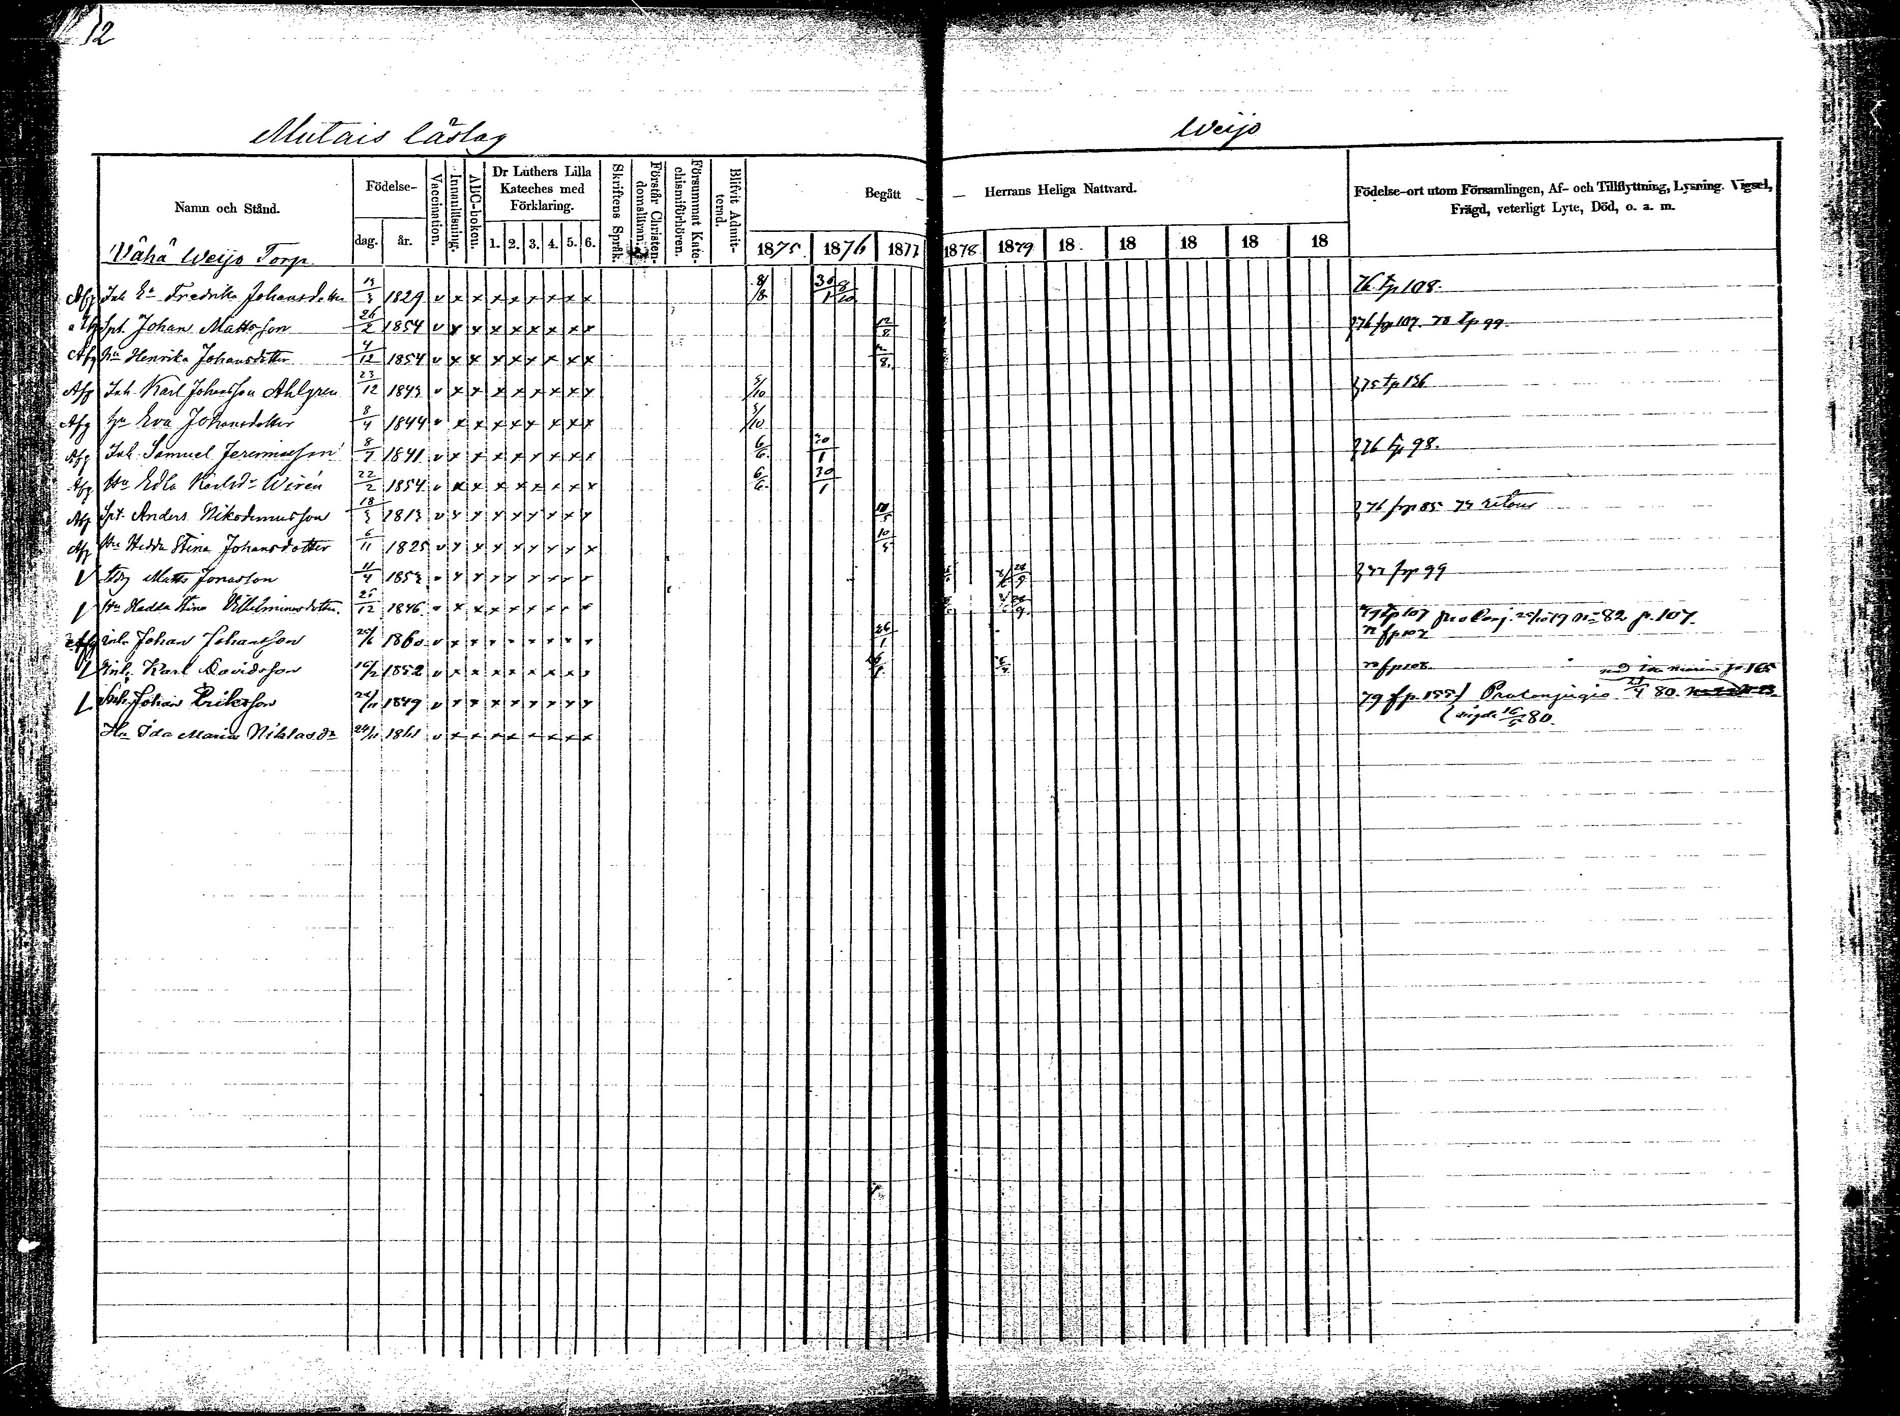 12
Mutais läslag
Weijo
Namn och Stånd.
Födelse-
dag. år.
Vaccination.
Innanläsning.
ABC-boken.
Dr Luthers Lilla
Kateches med
Förklaring.
1. 2. 3. 4. 5. 6.
Skriftens Språk.
Förstår Christen-
domslivan.
Försummat Kate-
chismiförhören.
Blifvit Admit-
terad.
Begått
Herrans Heliga Nattvard.
1875. 1876 1877 1878 1879 18 18 18 18 18
Födelse-ort utom Församlingen, Af- och Tillflyttning, Lysning. Vigsel,
Frägd, veterligt Lyte, Död, o. a. m.
Vähä Weijo Torp
Afg Inh Ea Fredrika Johansdotter 1829 v x x x x x x x x 76 tp 108.
Spt. Johan Mattsson 26/2 1854 v x x x x x x x x 76 frp 107. 78 tp 99.
Afg Hu Henrika Johansdotter 4/12 1854 v x x x x x x x x
Afg Inh Karl Johansson Ahlgren 23/12 1843 v x x x x x x x x 5/10 75 tp 136
Afg Hu Eva Johansdotter 8/4 1844 v x x x x x x x x 5/10
Afg Inh Samuel Jeremiasson 8/7 1841 v x x x x x x x x 6/6 30/1 76 tp 98.
Afg Hu Edla Karlsdr Wirén 22/2 1854 v x x x x x x x x 6/6 30/1
Afg Spt. Anders Nikodemusson 18/3 1813 v x x x x x x x x 10/5 76 frp 85 77 retour
Afg Hu Hedda Stina Johansdotter 6/11 1825 v x x x x x x x x 10/5
Matts Jonasson 11/4 1853 v x x x x x x x x frp 99
Hu Hedda Stina Vilhelminusdotter. 25/12 1846 v x x x x x x x x
79 tp 107 82 p. 107.
Inh. Johan Johansson 1860 v x x x x x x x x 26/1 fp 107
Inh. Karl Davidsson 1852 v x x x x x x x x fp 108
Ida Maria p 165
Inh. Johan Eriksson 1849 v x x x x x x x x 79 fp. 155 80
vigde 16/5 80.
Hu Ida Maria Niklasdr 1861 v x x x x x x x x